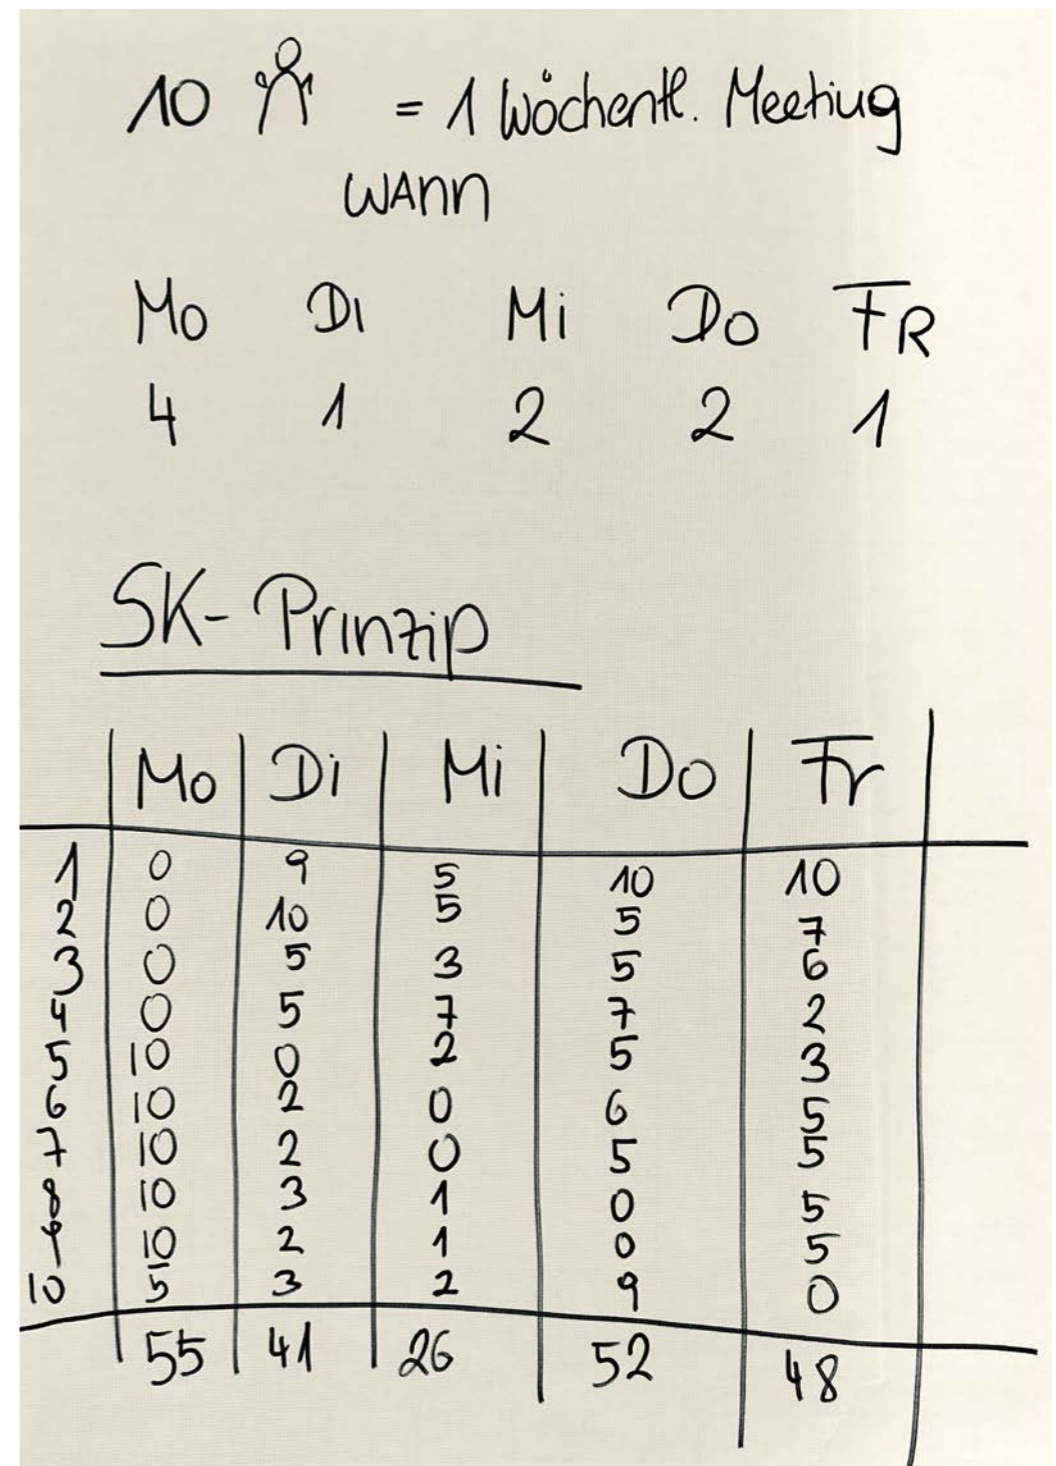 10 = 1 Wöchentl. Meeting
WANN
Mo Di Mi Do FR
4 1 2 2 1
SK-Prinzip
Mo Di Mi Do Fr
1 0 9 5 10 10
2 0 10 5 5 7
3 0 5 3 5 6
4 0 5 7 7 2
5 10 0 2 5 3
6 10 2 0 6 5
7 10 2 0 5 5
8 10 3 1 0 5
9 10 2 1 0 5
10 5 3 2 9 0
55 41 26 52 48